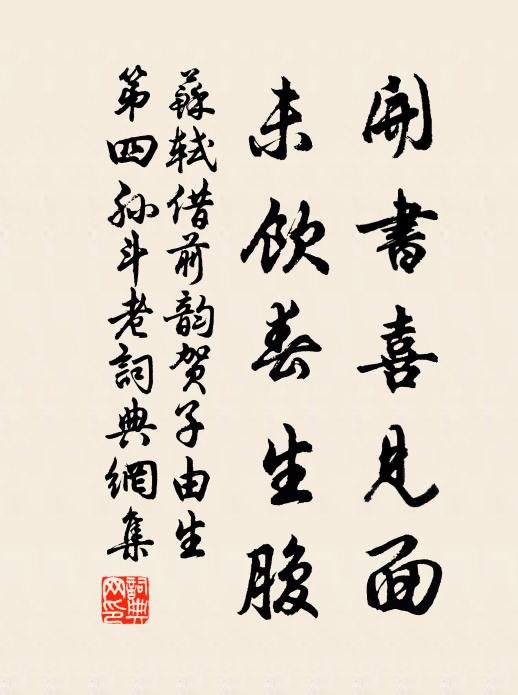 開書喜見面
未飲春生腹
蘇軾借前韵賀子由生
第四孫斗老詞典網集
詞典网印